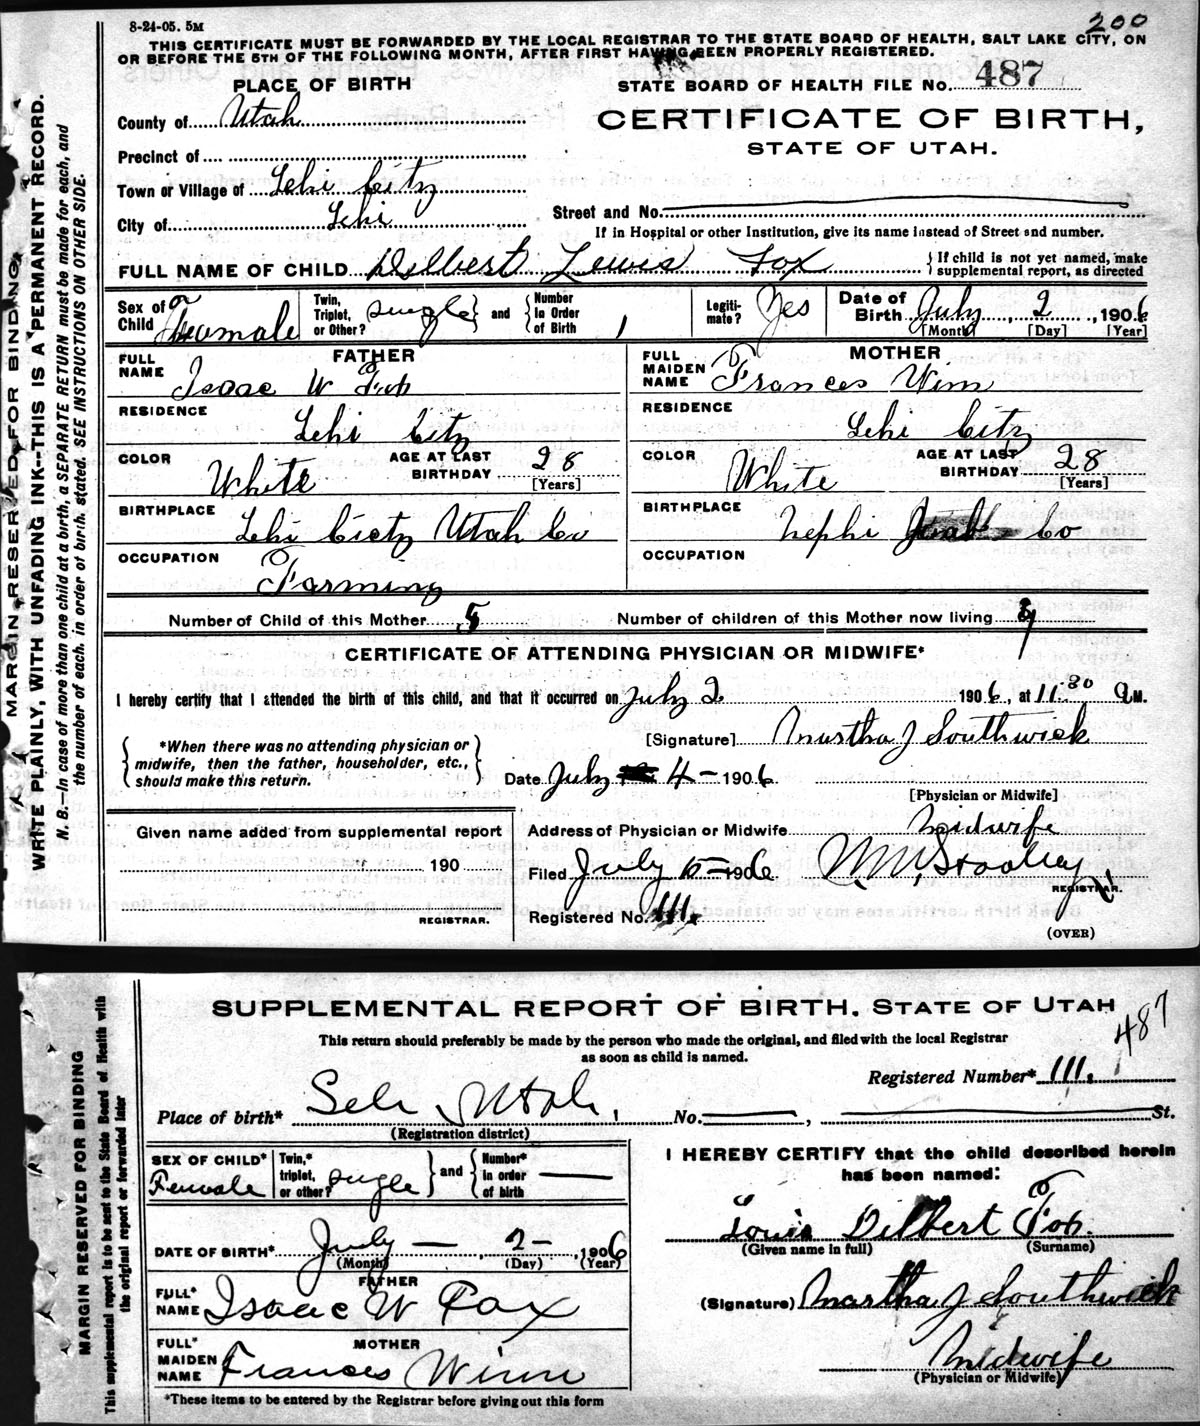 8-24-05. 5M
200
THIS CERTIFICATE MUST BE FORWARDED BY THE LOCAL REGISTRAR TO THE STATE BOARD OF HEALTH, SALT LAKE CITY, ON
OR BEFORE THE 5TH OF THE FOLLOWING MONTH, AFTER FIRST HAVING BEEN PROPERLY REGISTERED.
MARGIN RESERVED FOR BINDING
WRITE PLAINLY, WITH UNFADING INK--THIS IS A PERMANENT RECORD.
N. B.—In case of more than one child at a birth, a SEPARATE RETURN must be made for each, and
the number of each, in order of birth, stated. SEE INSTRUCTIONS ON OTHER SIDE.
PLACE OF BIRTH
STATE BOARD OF HEALTH FILE NO. 487
County of Utah
CERTIFICATE OF BIRTH,
STATE OF UTAH.
Precinct of
Town or Village of Lehi City
City of Lehi
Street and No.
If in Hospital or other Institution, give its name instead of Street and number.
FULL NAME OF CHILD Dilbert Lewis Fox
If child is not yet named, make
supplemental report, as directed
Sex of Child Female
Twin, Triplet, or Other? single and Number in Order of Birth 1
Legitimate? Yes
Date of Birth July 2, 1906
[Month] [Day] [Year]
FATHER
FULL NAME Isaac W Fox
MOTHER
FULL MAIDEN NAME Frances Winn
RESIDENCE Lehi City
RESIDENCE Lehi City
COLOR White AGE AT LAST BIRTHDAY 28 [Years]
COLOR White AGE AT LAST BIRTHDAY 28 [Years]
BIRTHPLACE Lehi City Utah Co
BIRTHPLACE Nephi Juab Co
OCCUPATION Farming
OCCUPATION
Number of Child of this Mother 5
Number of children of this Mother now living
CERTIFICATE OF ATTENDING PHYSICIAN OR MIDWIFE*
I hereby certify that I attended the birth of this child, and that it occurred on July 2 1906, at 11:30 A.M.
*When there was no attending physician or
midwife, then the father, householder, etc.,
should make this return.
[Signature] Martha J Southwick
Date July 4 - 1906
[Physician or Midwife]
Given name added from supplemental report
190
REGISTRAR.
Address of Physician or Midwife Midwife
Filed July 15-1906
REGISTRAR.
Registered No. 111.
(OVER)
MARGIN RESERVED FOR BINDING
This supplemental report is to be sent to the State Board of Health with
the original report or forwarded later
SUPPLEMENTAL REPORT OF BIRTH. STATE OF UTAH
487
This return should preferably be made by the person who made the original, and filed with the local Registrar
as soon as child is named.
Registered Number* 111.
Place of birth* Lehi, Utah. No. , St.
(Registration district)
SEX OF CHILD* Female
Twin,* triplet, or other? single and Number* in order of birth
I HEREBY CERTIFY that the child described herein
has been named:
Louis Dilbert Fox.
(Given name in full) (Surname)
DATE OF BIRTH* July - , 2 - , 1906
(Month) (Day) (Year)
FATHER
FULL* NAME Isaac W Fox
(Signature) Martha J Southwick
MOTHER
FULL* MAIDEN NAME Frances Winn
Midwife
(Physician or Midwife)
*These items to be entered by the Registrar before giving out this form